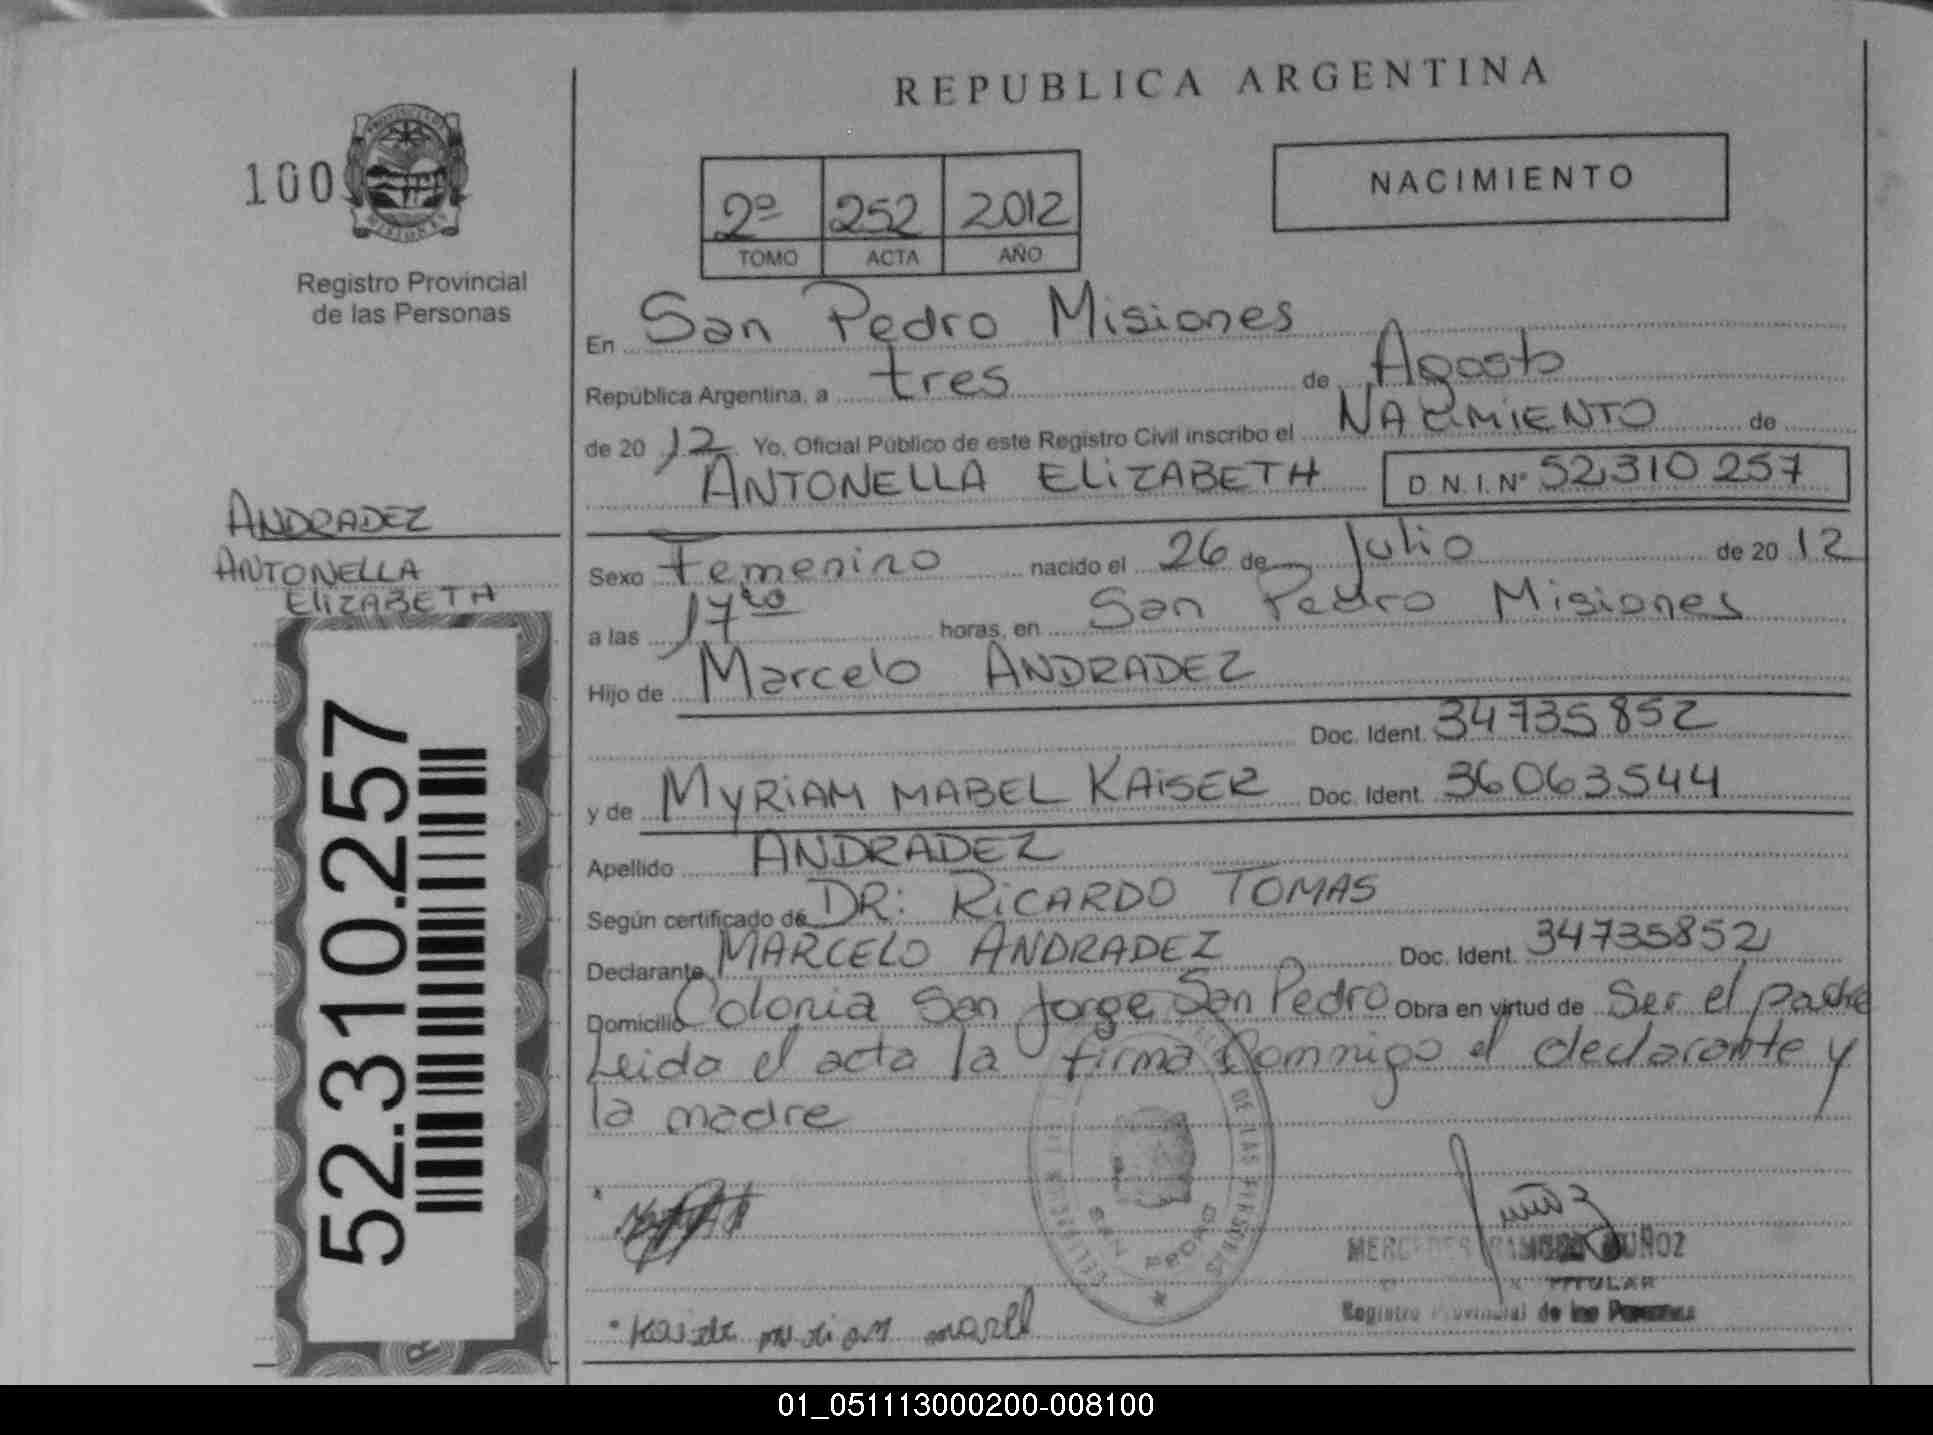 REPUBLICA ARGENTINA
100
Registro Provincial
de las Personas
NACIMIENTO
2º 252 2012
TOMO ACTA AÑO
En San Pedro Misiones
República Argentina, a tres de Agosto
de 2012 Yo, Oficial Público de este Registro Civil inscribo el NACIMIENTO de
ANTONELLA ELIZABETH D.N.I.Nº 52310257
ANDRADEZ
ANTONELLA
ELIZABETH
52.310.257
Sexo Femenino nacido el 26 de Julio de 2012
a las 17 horas, en San Pedro Misiones
Hijo de Marcelo ANDRADEZ
Doc. Ident. 34735852
y de MYRIAM MABEL KAISER Doc. Ident. 36063544
Apellido ANDRADEZ
Según certificado de DR: RICARDO TOMAS
Declarante MARCELO ANDRADEZ Doc. Ident. 34735852
Domicilio Colonia San Jorge San Pedro Obra en virtud de Ser el padre
Leida el acta la firma Commigo el declarante y
la madre
DE LAS PERSONAS
SAN PEDRO
MERCEDES RAMONA MUÑOZ
TITULAR
Registro Provincial de las Personas
01_051113000200-008100